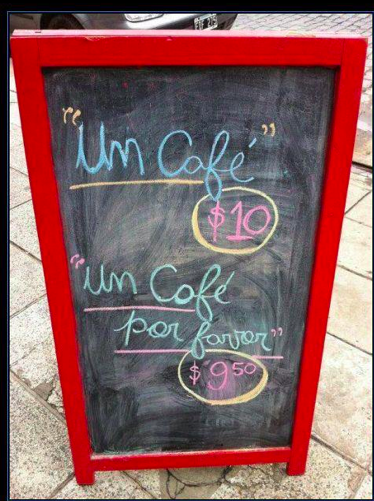 "Un Café"
$10
"Un Café
por favor"
$9⁵⁰